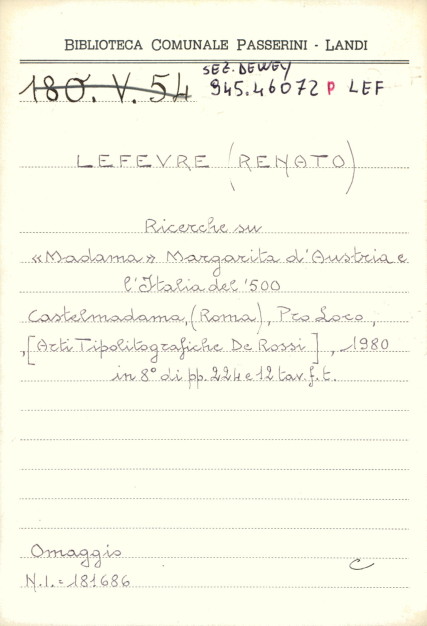 BIBLIOTECA COMUNALE PASSERINI - LANDI
SEZ. DEWEY
180. V. 54 945.46072 P LEF
LEFEVRE (RENATO)
Ricerche su
«Madama» Margarita d'Austria e
l'Italia del '500
Castelmadama, (Roma), Pro Loco,
,[Arti Tipolitografiche De Rossi], 1980
in 8° di pp. 224 e 12 tav. f. t.
Omaggio
C
N.I. = 181686